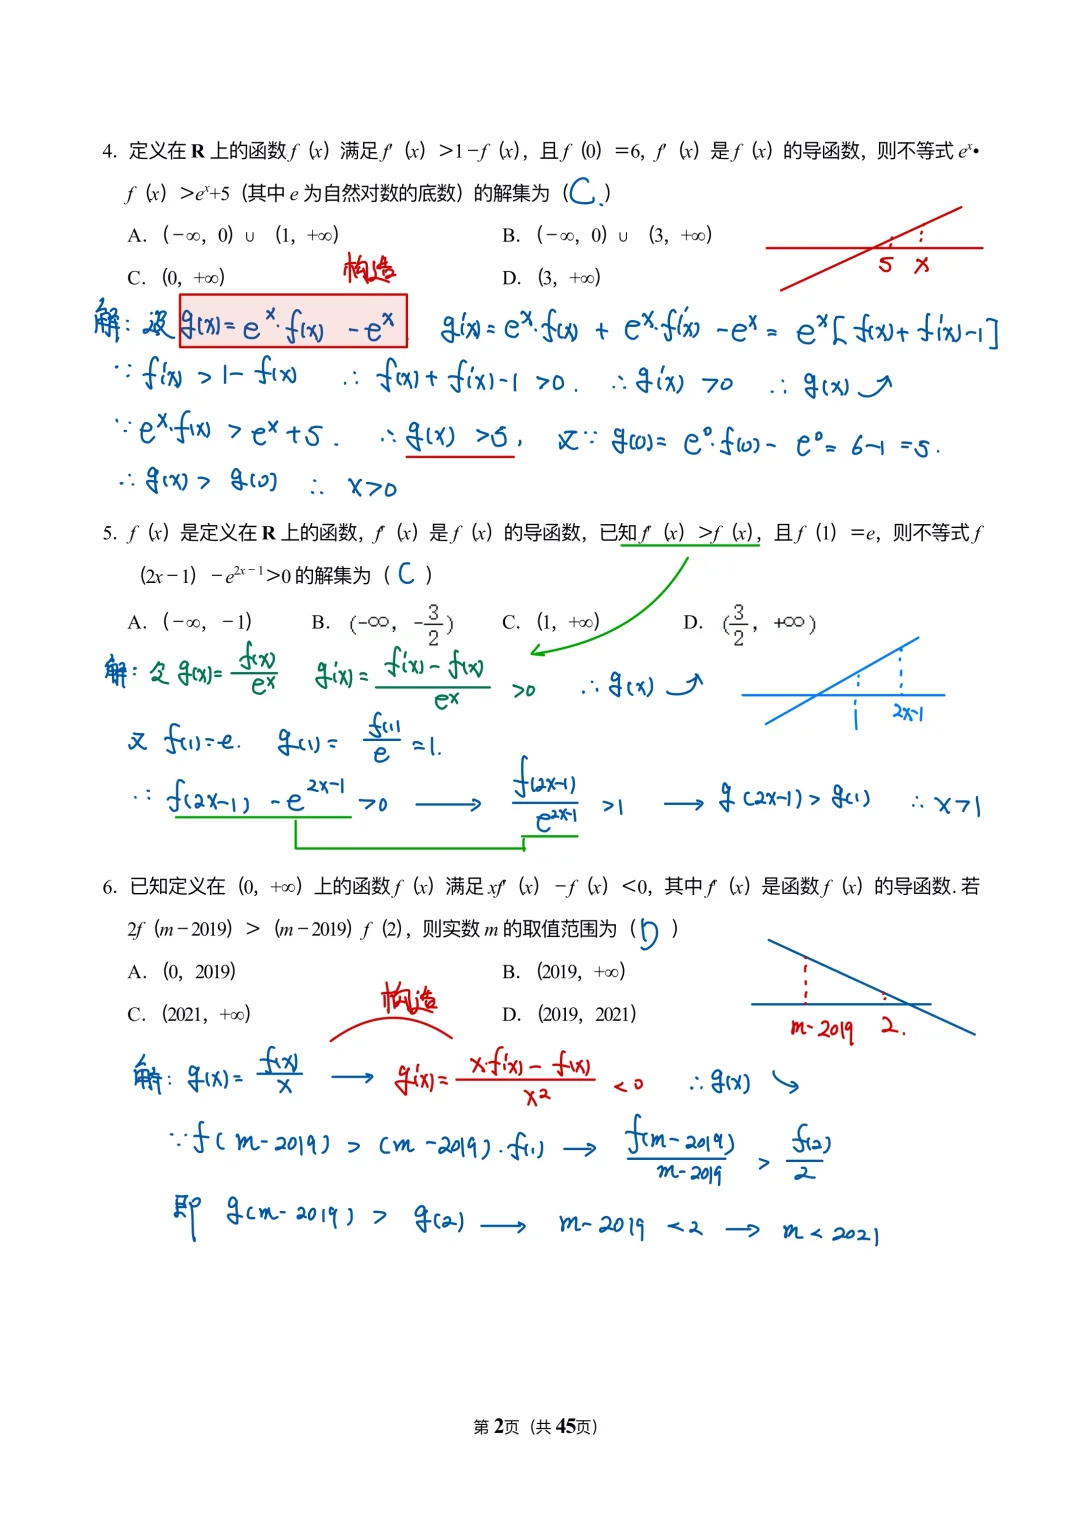 4. 定义在 R 上的函数 f（x）满足 f′（x）＞1－f（x），且 f（0）＝6，f′（x）是 f（x）的导函数，则不等式 eˣ•
f（x）＞eˣ+5（其中 e 为自然对数的底数）的解集为（C.）
A.（－∞，0）∪（1，+∞） B.（－∞，0）∪（3，+∞）
5 x
C.（0，+∞） 构造 D.（3，+∞）
解：设 g(x)=eˣ·f(x) -eˣ g′(x)=eˣ·f(x) + eˣ·f′(x) -eˣ = eˣ[f(x)+f′(x)-1]
∵ f′(x) > 1-f(x) ∴ f(x)+f′(x)-1 >0. ∴ g′(x) >0 ∴ g(x) ↗
∵ eˣ·f(x) > eˣ+5. ∴ g(x) >5, 又∵ g(0)= e⁰·f(0)- e⁰= 6-1 =5.
∴ g(x) > g(0) ∴ x>0
5. f（x）是定义在 R 上的函数，f′（x）是 f（x）的导函数，已知 f′（x）＞f（x），且 f（1）＝e，则不等式 f
（2x－1）－e²ˣ⁻¹＞0 的解集为（ C ）
A.（－∞，－1） B. (-∞, -3/2) C.（1，+∞） D. (3/2, +∞)
解：令 g(x)= f(x)/eˣ g′(x)= (f′(x)-f(x))/eˣ >0 ∴ g(x) ↗
1 2x-1
又 f(1)=e. g(1)= f(1)/e =1.
∵ f(2x-1) -e²ˣ⁻¹ >0 → f(2x-1)/e²ˣ⁻¹ >1 → g(2x-1) > g(1) ∴ x>1
6. 已知定义在（0，+∞）上的函数 f（x）满足 xf′（x）－f（x）＜0，其中 f′（x）是函数 f（x）的导函数. 若
2f（m－2019）＞（m－2019）f（2），则实数 m 的取值范围为（ D ）
A.（0，2019） B.（2019，+∞）
C.（2021，+∞） 构造 D.（2019，2021）
m-2019 2.
解：g(x)= f(x)/x → g′(x)= (x·f′(x)-f(x))/x² <0 ∴ g(x) ↘
∵ f(m-2019) > (m-2019)·f(1) → f(m-2019)/(m-2019) > f(2)/2
即 g(m-2019) > g(2) → m-2019 <2 → m<2021
第 2页（共 45页）